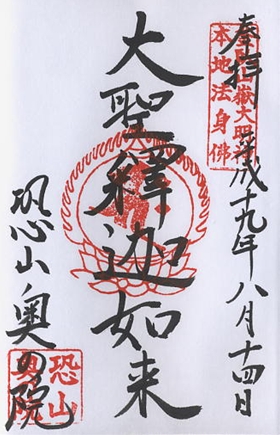 奉拝
平成十九年八月十四日
山嶽大明
本地法身佛
大聖釋迦如来
恐山奥の院
恐山